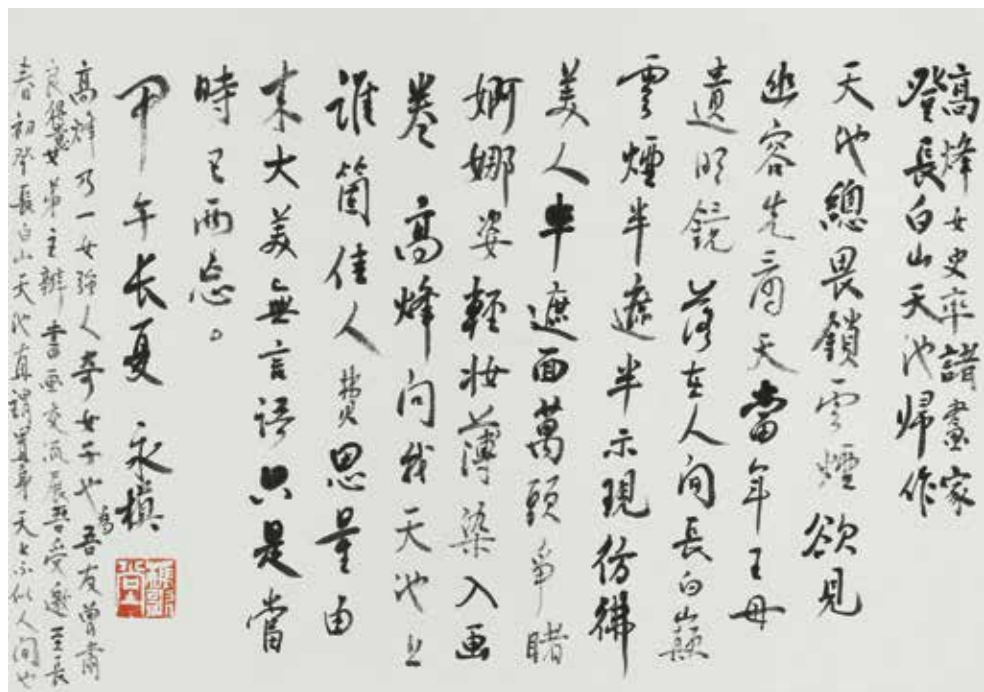 高烽女史率諸畫家
登長白山天池归作
天池總畏鎖雲煙欲見
幽容先商天當年王母
遺明鏡落在人间長白山巔
雲煙半遮半示現彷彿
美人半遮面萬頭争睹
婀娜姿輕妆薄染入画
卷高烽问我天池上
誰箇佳人费思量由
来大美無言语只是當
時已两忘。
甲午长夏永槙
高烽乃一女强人奇女子也吾友曾肅
良 女弟主辦書画交流展吾受邀至長
春初登長白山天池真謂 天上不似人间也